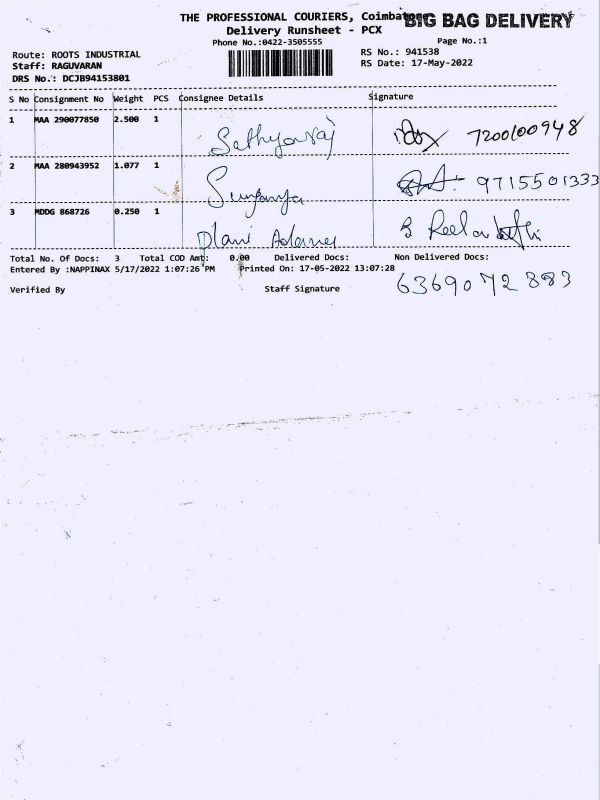 THE PROFESSIONAL COURIERS, Coimbatore BIG BAG DELIVERY
Delivery Runsheet - PCX
Phone No.:0422-3505555 Page No.:1
Route: ROOTS INDUSTRIAL RS No.: 941538
Staff: RAGUVARAN RS Date: 17-May-2022
DRS No.: DCJB94153801
S No Consignment No Weight PCS Consignee Details Signature
1 MAA 290077850 2.500 1 Sathyaraj 7200100948
2 MAA 280943952 1.077 1 9715501333
3 MDDG 868726 0.250 1
Total No. Of Docs: 3 Total COD Amt: 0.00 Delivered Docs: Non Delivered Docs:
Entered By :NAPPINAX 5/17/2022 1:07:26 PM Printed On: 17-05-2022 13:07:28
6369072883
Verified By Staff Signature